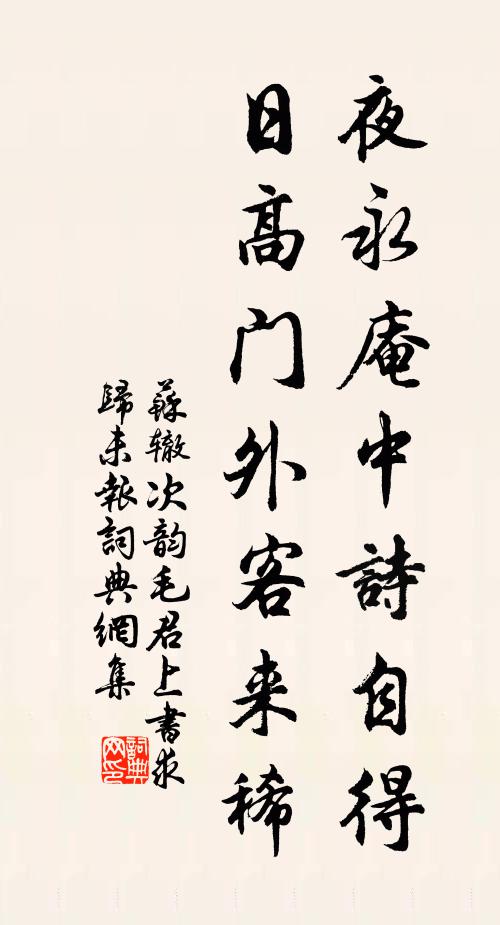 夜永庵中詩自得
日高门外客来稀
蘇辙次韵毛君上書求
歸未報詞典網集
詞典網印